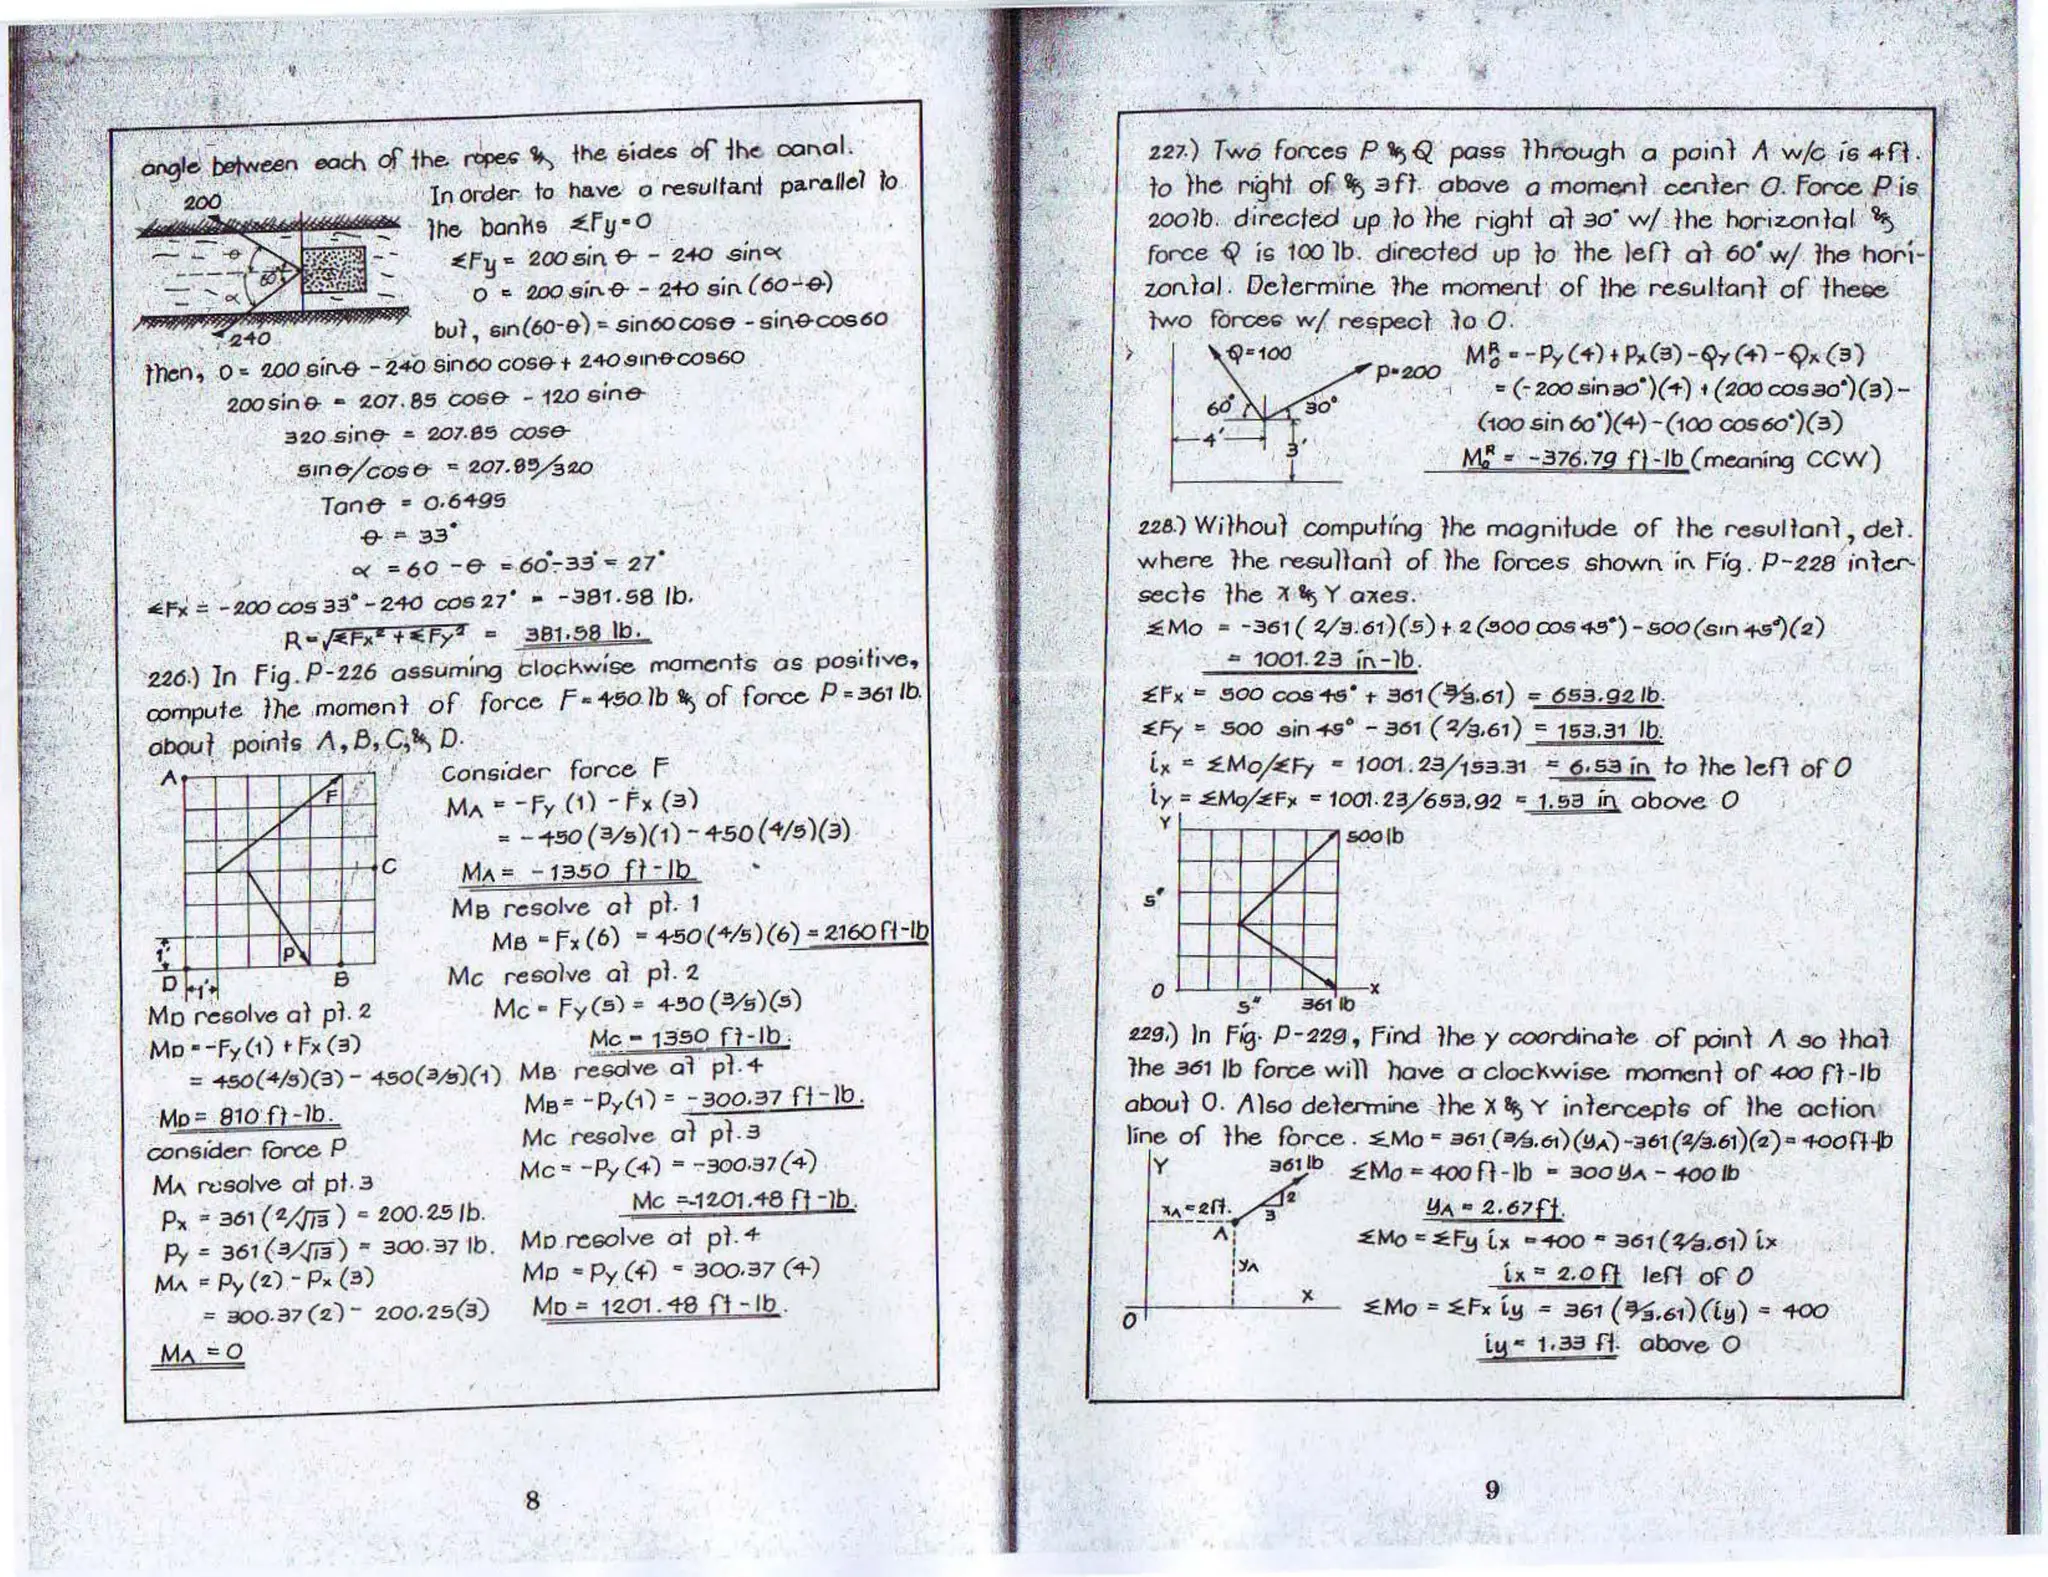 angle between each of the ropes & the sides of the canal.
200
θ
60°
α
240
In order to have a resultant parallel to
the banks ΣFy = 0
ΣFy = 200 sin θ - 240 sin α
0 = 200 sin θ - 240 sin (60-θ)
but, sin(60-θ) = sin60cosθ - sinθcos60
then, 0 = 200 sinθ - 240 sin60 cosθ + 240 sinθcos60
200 sinθ = 207.85 cosθ - 120 sinθ
320 sinθ = 207.85 cosθ
sinθ/cosθ = 207.85/320
Tanθ = 0.6495
θ = 33°
α = 60 - θ = 60°-33° = 27°
ΣFx = -200 cos 33° - 240 cos 27° = -381.58 lb.
R = √ΣFx² + ΣFy² = 381.58 lb.
226.) In Fig. P-226 assuming clockwise moments as positive,
compute the moment of force F = 450 lb & of force P = 361 lb.
about points A, B, C, & D.
A
F
C
P
1'
D
1'
B
Consider force F
MA = -Fy (1) - Fx (3)
= -450 (3/5)(1) - 450 (4/5)(3)
MA = -1350 ft-lb
MB resolve at pt. 1
MB = Fx (6) = 450 (4/5)(6) = 2160 ft-lb
MC resolve at pt. 2
MC = Fy (5) = 450 (3/5)(5)
MC = 1350 ft-lb.
MD resolve at pt. 2
MD = -Fy (1) + Fx (3)
= 450(4/5)(3) - 450(3/5)(1)
MD = 810 ft-lb.
consider force P
MA resolve at pt. 3
Px = 361 (2/√13) = 200.25 lb.
Py = 361 (3/√13) = 300.37 lb.
MA = Py (2) - Px (3)
= 300.37 (2) - 200.25(3)
MA = 0
MB resolve at pt. 4
MB = -Py(1) = -300.37 ft-lb.
MC resolve at pt. 3
MC = -Py (4) = -300.37(4)
MC = -1201.48 ft-lb.
MD resolve at pt. 4
MD = Py (4) = 300.37 (4)
MD = 1201.48 ft-lb.
8
227.) Two forces P & Q pass through a point A w/c is 4ft.
to the right of & 3ft. above a moment center O. Force P is
200lb. directed up to the right at 30° w/ the horizontal &
force Q is 100 lb. directed up to the left at 60° w/ the hori-
zontal. Determine the moment of the resultant of these
two forces w/ respect to O.
Q=100
P=200
60°
30°
4'
3'
MᴿO = -Py (4) + Px (3) - Qy (4) - Qx (3)
= (-200 sin30°)(4) + (200 cos30°)(3) -
(100 sin 60°)(4) - (100 cos60°)(3)
MᴿO = -376.79 ft-lb (meaning CCW)
228.) Without computing the magnitude of the resultant, det.
where the resultant of the forces shown in Fig. P-228 inter-
sects the X & Y axes.
ΣMO = -361 (2/3.61)(5) + 2 (500 cos 45°) - 500 (sin 45°)(2)
= 1001.23 in-lb.
ΣFx = 500 cos 45° + 361 (3/3.61) = 653.92 lb.
ΣFy = 500 sin 45° - 361 (2/3.61) = 153.31 lb.
ix = ΣMO/ΣFy = 1001.23/153.31 = 6.53 in to the left of O
iy = ΣMO/ΣFx = 1001.23/653.92 = 1.53 in above O
Y
500lb
5"
O
5"
361 lb
X
229.) In Fig. P-229, Find the y coordinate of point A so that
the 361 lb force will have a clockwise moment of 400 ft-lb
about O. Also determine the X & Y intercepts of the action
line of the force. ΣMO = 361 (3/3.61)(yA) - 361 (2/3.61)(2) = 400ft-lb
Y
361 lb
2
3
xA = 2ft.
A
yA
X
O
ΣMO = 400 ft-lb = 300 yA - 400 lb
yA = 2.67ft.
ΣMO = ΣFy ix = 400 = 361 (2/3.61) ix
ix = 2.0 ft left of O
ΣMO = ΣFx iy = 361 (3/3.61)(iy) = 400
iy = 1.33 ft. above O
9